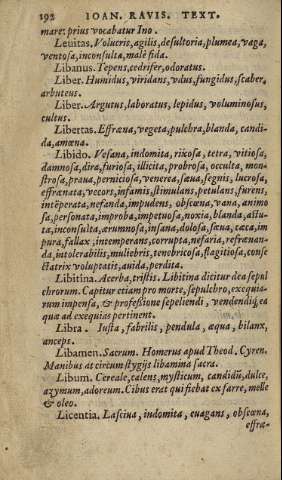 192 IOAN. RAVIS. TEXT.
mare: prius vocabatur Ino.
Leuitas. Volucris, agilis, desultoria, plumea, vaga,
ventosa, inconsulta, malè fida.
Libanus. Tepens, cedrifer, odoratus.
Liber. Humidus, viridans, vdus, fungidus, scaber,
arbuteus.
Liber. Argutus, laboratus, lepidus, voluminosus,
cultus.
Libertas. Effræna, vegeta, pulchra, blanda, candi-
da, amœna.
Libido. Vesana, indomita, rixosa, tetra, vitiosa,
damnosa, dira, furiosa, illicita, probrosa, occulta, mon-
strosa, praua, perniciosa, venerea, sæua, segnis, lucrosa,
effrænata, vecors, infamis, stimulans, petulans, furens,
intẽperata, nefanda, impudens, obscœna, vana, animo
sa, personata, improba, impetuosa, noxia, blanda, astu-
ta, inconsulta, ærumnosa, insana, dolosa, fœua, cæca, im
pura, fallax, intemperans, corrupta, nefaria, refrænan-
da, intolerabilis, muliebris, tenebricosa, flagitiosa, conse
ctatrix voluptatis, auida, perdita.
Libitina. Acerba, tristis. Libitina dicitur dea sepul
chrorum. Capitur etiam pro morte, sepulchro, exequia-
rum impensa, & professione sepeliendi, vendendiq́; ea
quæ ad exequias pertinent.
Libra. Iusta, fabrilis, pendula, æqua, bilanx,
anceps.
Libamen. Sacrum. Homerus apud Theod. Cyren.
Manibus at circum stygijs libamina sacra.
Libum. Cereale, calens, mysticum, candidũ, dulce,
azymum, adoreum. Cibus erat qui fiebat ex farre, melle
& oleo.
Licentia. Lasciua, indomita, euagans, obscœna,
effræ-